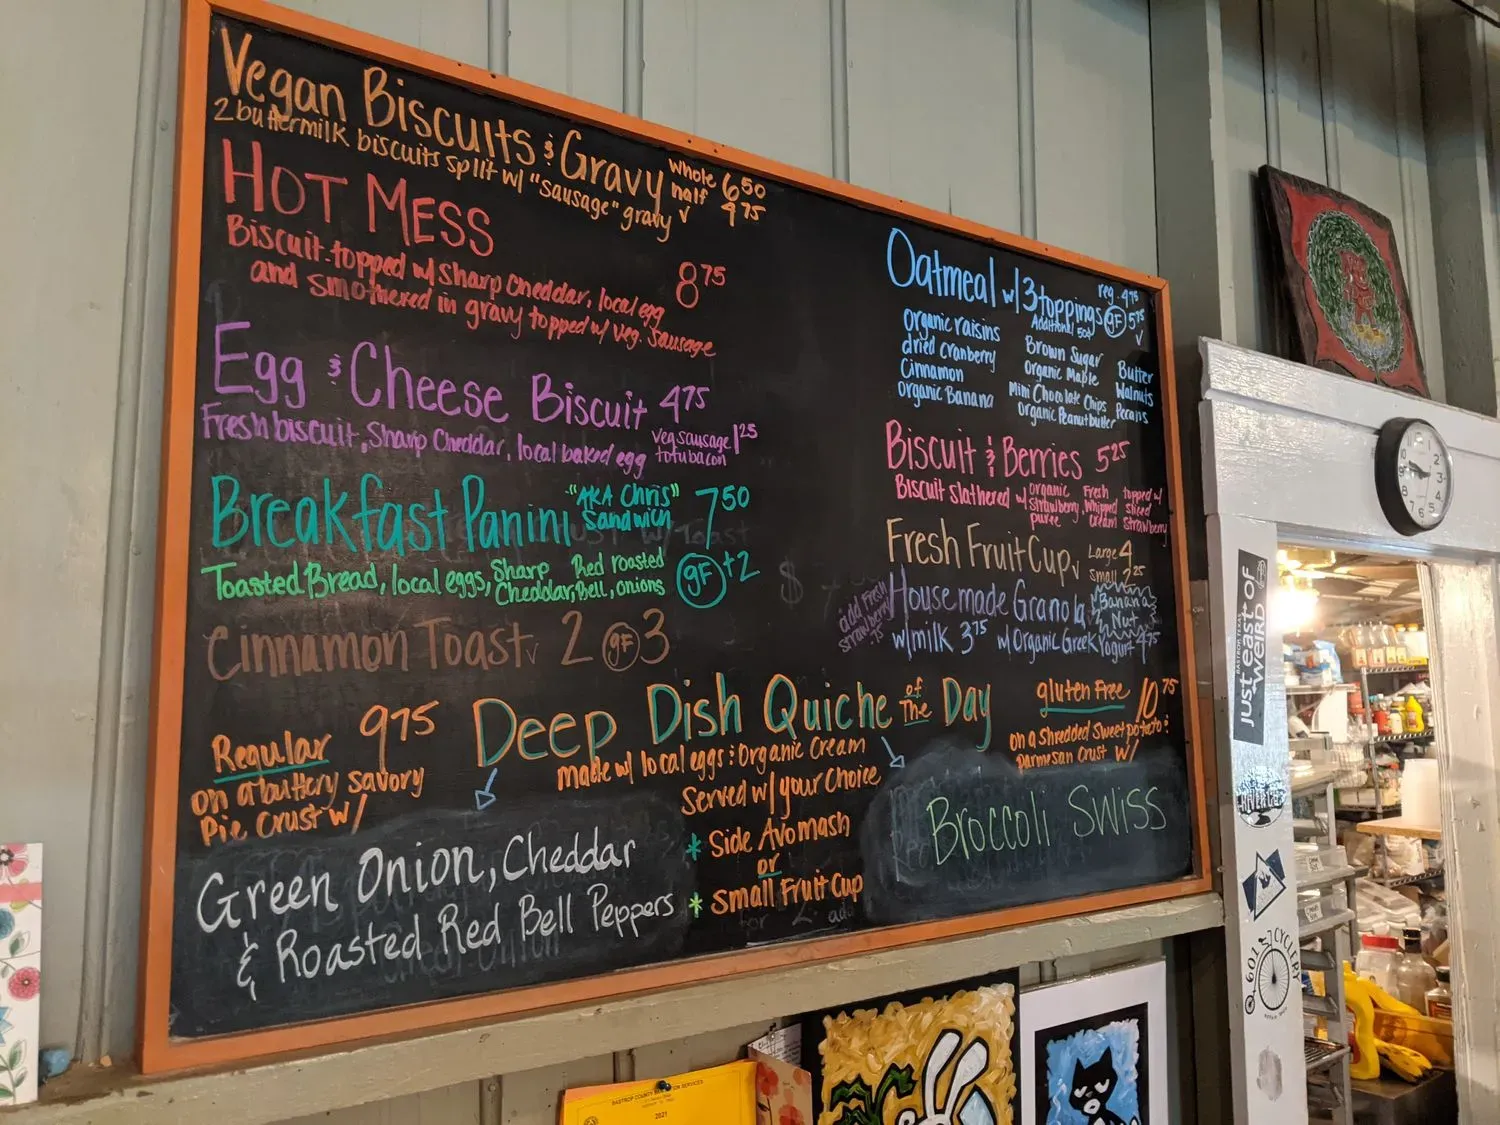 Vegan Biscuits & Gravy
2 buttermilk biscuits split w/ "sausage" gravy
whole 6 50
half 4 75
v
HOT MESS
Biscuit topped w/ sharp cheddar, local egg
and smothered in gravy topped w/ veg. sausage
8 75
Egg & Cheese Biscuit 4 75
Fresh biscuit, Sharp Cheddar, local baked egg
veg sausage 1 25
tofu bacon
Breakfast Panini "AKA Chris" sandwich 7 50
Toasted Bread, local eggs, Sharp Cheddar, Red roasted Bell, onions
gF +2
Cinnamon Toast v 2 gF 3
Oatmeal w/ 3 toppings
reg. 4 75
gF 5 75
v
Additional 50¢
organic raisins
dried cranberry
Cinnamon
organic Banana
Brown Sugar
Organic Maple
Mini Chocolate Chips
Organic Peanut butter
Butter
Walnuts
Pecans
Biscuit & Berries 5 25
Biscuit slathered w/ organic strawberry puree, Fresh whipped cream topped w/ sliced strawberry
Fresh Fruit Cup v
Large 4
Small 2 25
add Fresh strawberry 75
Housemade Granola
Banana Nut
w/milk 3 75 w/ Organic Greek Yogurt 4 75
Deep Dish Quiche of The Day
made w/ local eggs & Organic Cream
Served w/ your choice
* Side Avomash
or
* Small Fruit Cup
Regular 9 75
on a buttery savory
Pie Crust w/
Green Onion, Cheddar
& Roasted Red Bell Peppers
gluten Free 10 75
on a shredded sweet potato &
parmesan crust w/
Broccoli Swiss
just east of WEIRD
BASTROP, TEXAS
601 CYCLERY
BASTROP COUNTY
SERVICES
2021